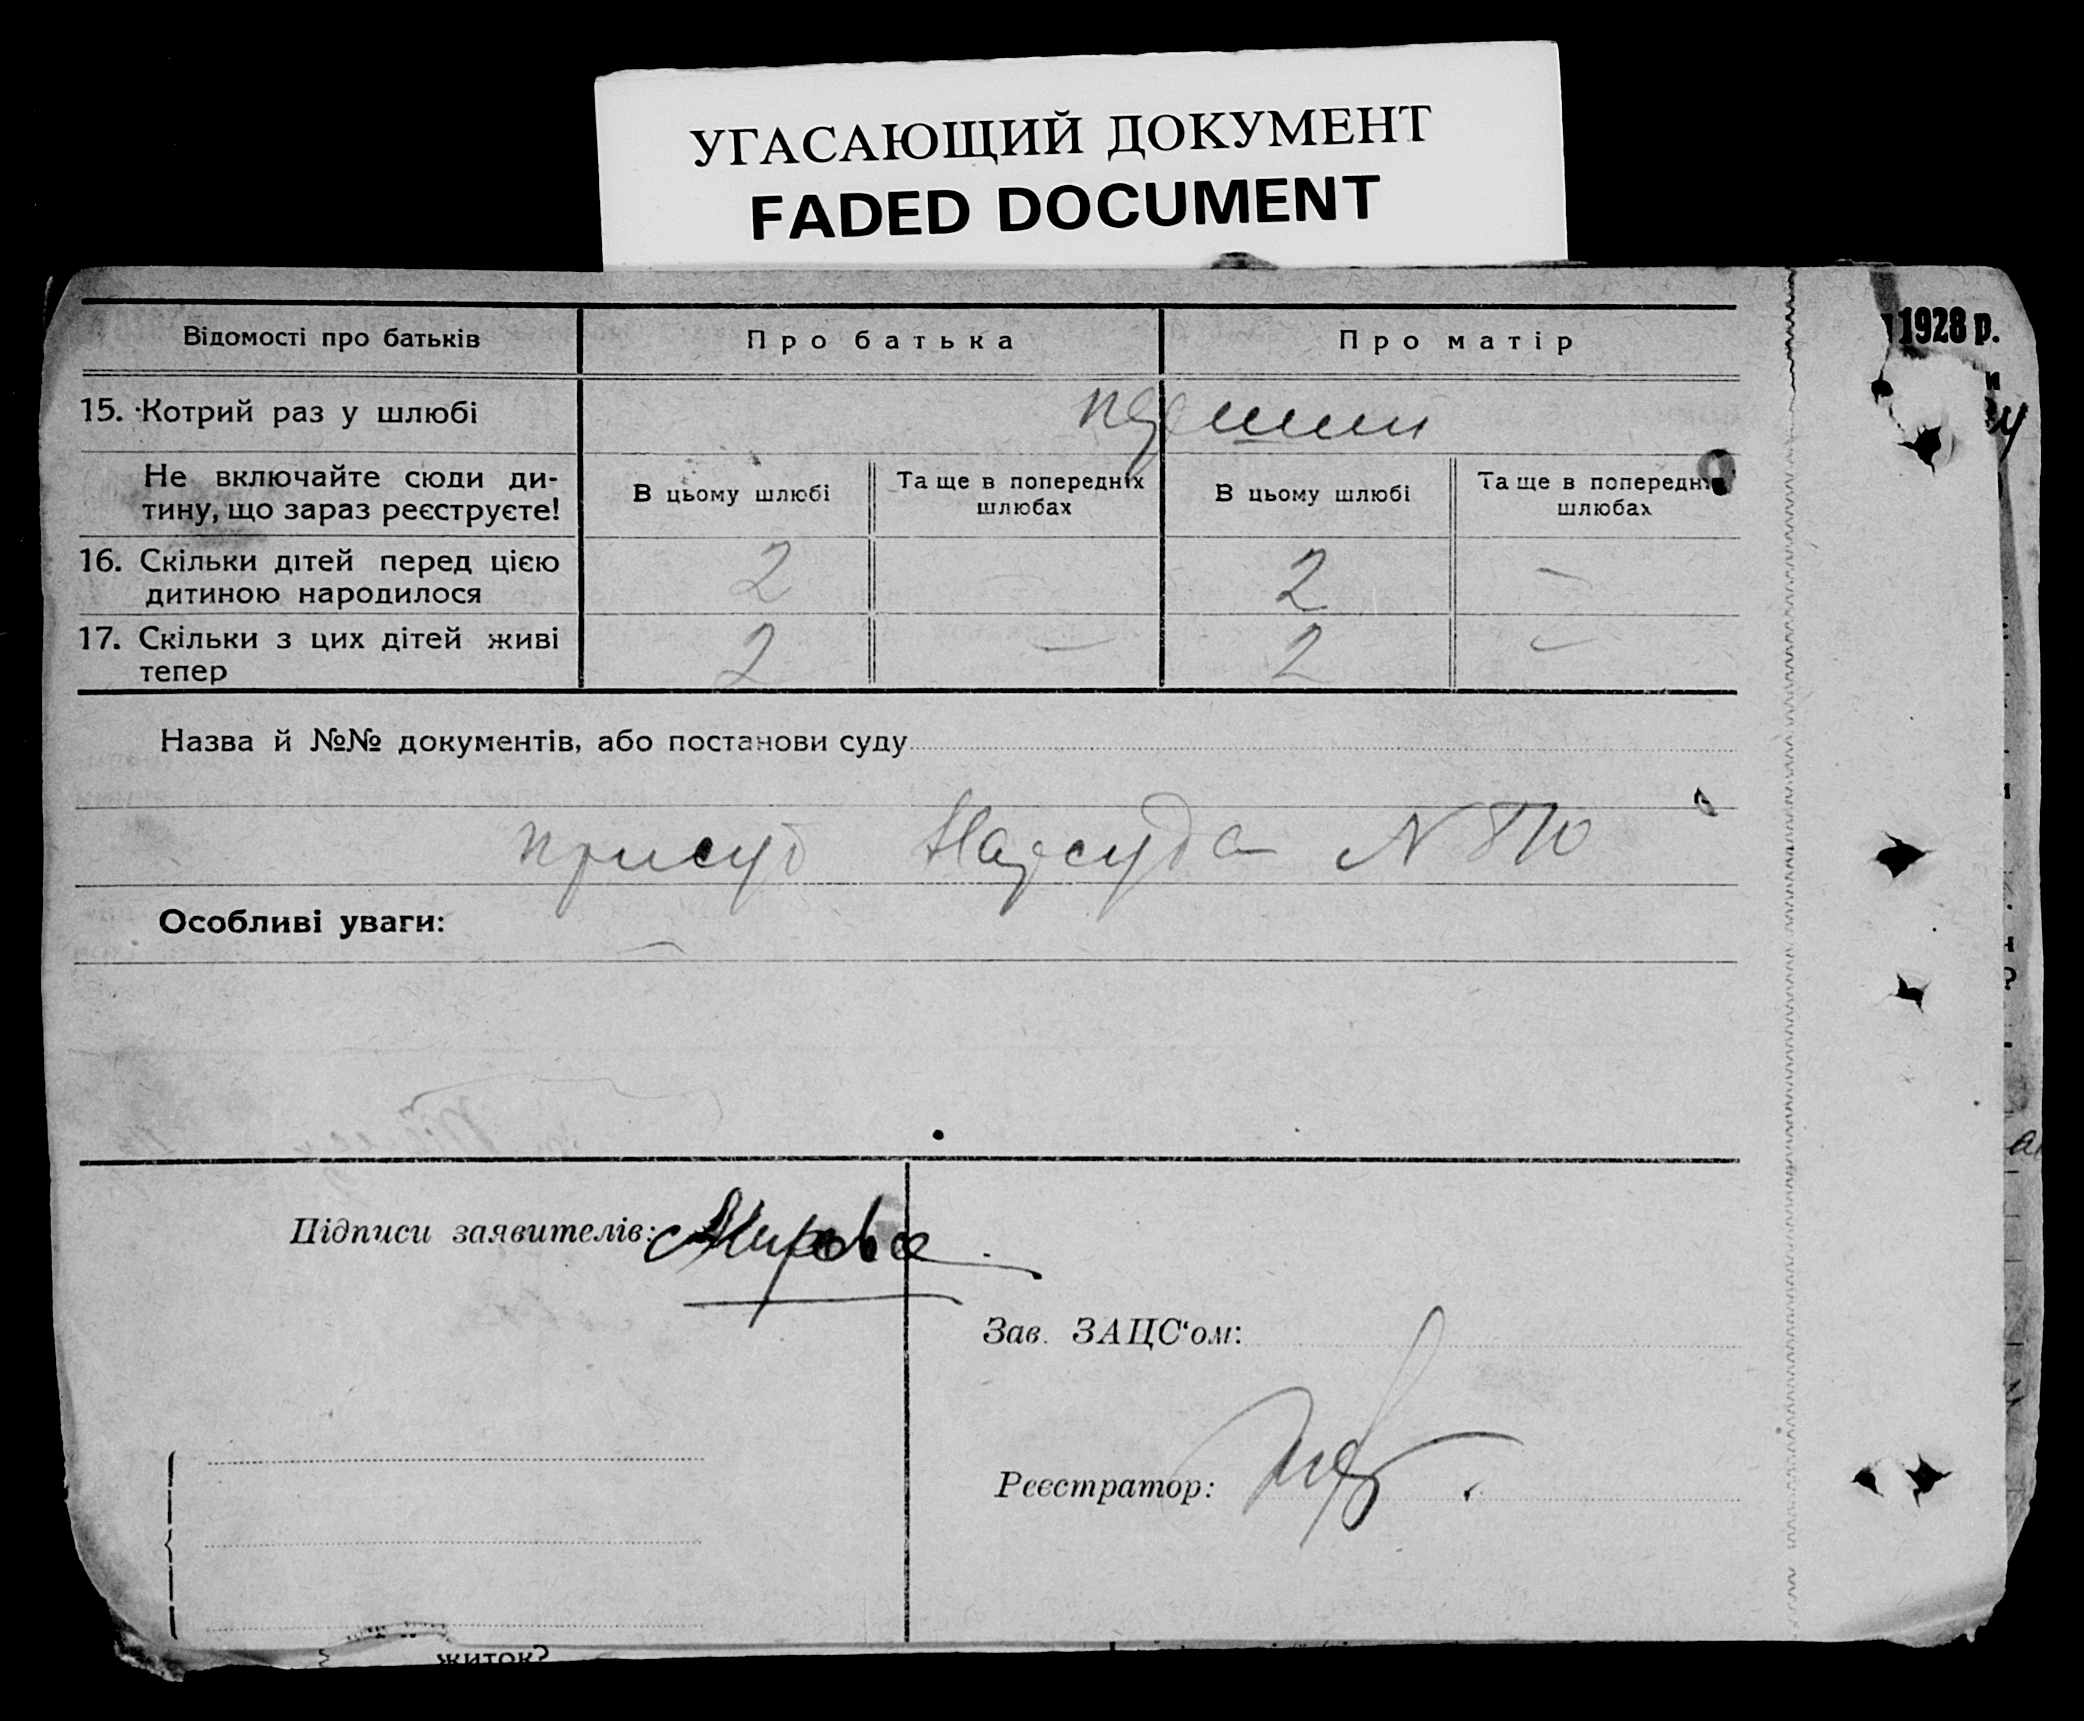 УГАСАЮЩИЙ ДОКУМЕНТ
FADED DOCUMENT
1928 р.
Відомості про батьків
Про батька
Про матір
15. Котрий раз у шлюбі
перший
Не включайте сюди ди-
тину, що зараз реєструєте!
В цьому шлюбі
Та ще в попередніх
шлюбах
В цьому шлюбі
Та ще в попередніх
шлюбах
16. Скільки дітей перед цією
дитиною народилося
2 — 2 —
17. Скільки з цих дітей живі
тепер
2 — 2 —
Назва й №№ документів, або постанови суду
присуд Нарсуда N 870
Особливі уваги:
—
Підписи заявителів:
Зав. ЗАЦС‘ом:
Реєстратор:
житок?